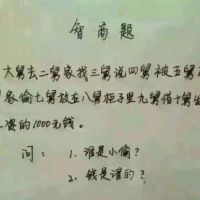 智商题
大舅去二舅家找三舅说四舅被五舅
家偷七舅放在八舅柜子里九舅借十舅
的1000元钱。
问：1. 谁是小偷？
2. 钱是谁的？